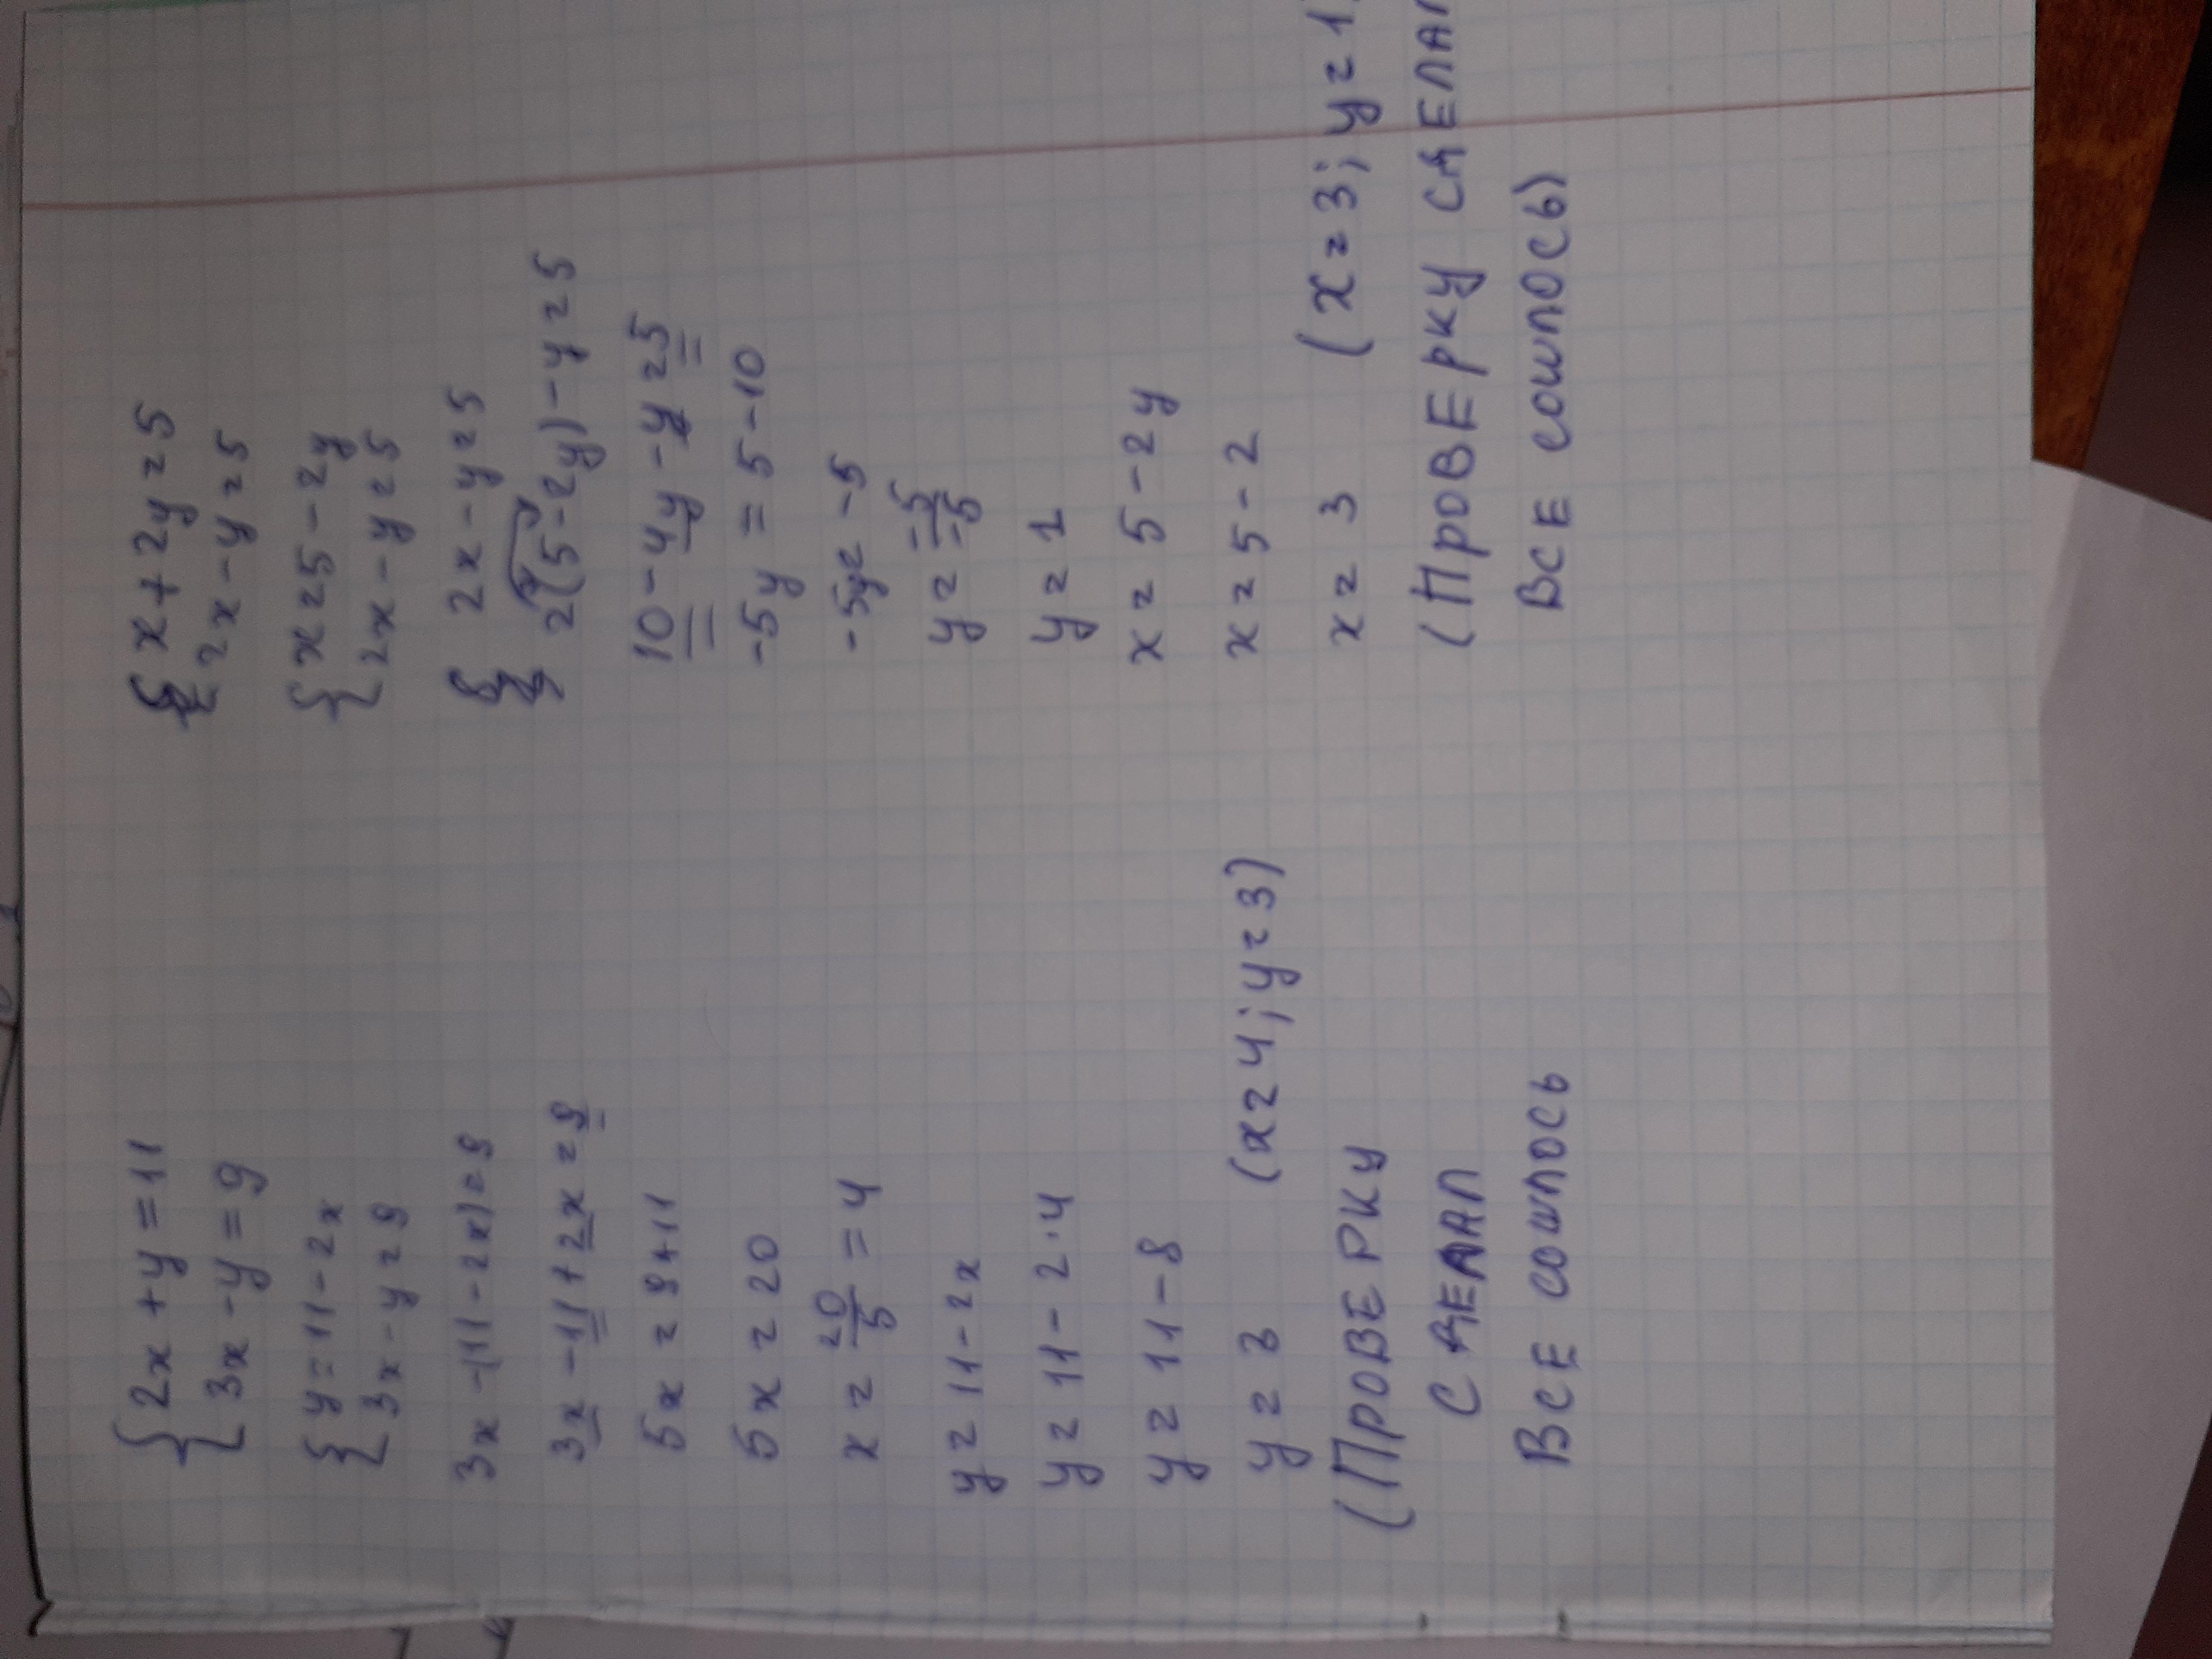 {2x+y=11
{3x-y=9
{y=11-2x
{3x-y=9
3x-(11-2x)=9
3x-11+2x=9
5x=9+11
5x=20
x=20/5=4
y=11-2x
y=11-2·4
y=11-8
y=3 (x=4;y=3)
(ПРОВЕРКУ
СДЕЛАЛ
ВСЕ СОШЛОСЬ
{x+2y=5
{2x-y=5
{x=5-2y
{2x-y=5
{2x-y=5
2(5-2y)-y=5
10-4y-y=5
-5y=5-10
-5y=-5
y=-5/-5
y=1
x=5-2y
x=5-2
x=3 (x=3;y=1)
(ПРОВЕРКУ СДЕЛАЛ
ВСЕ СОШЛОСЬ)